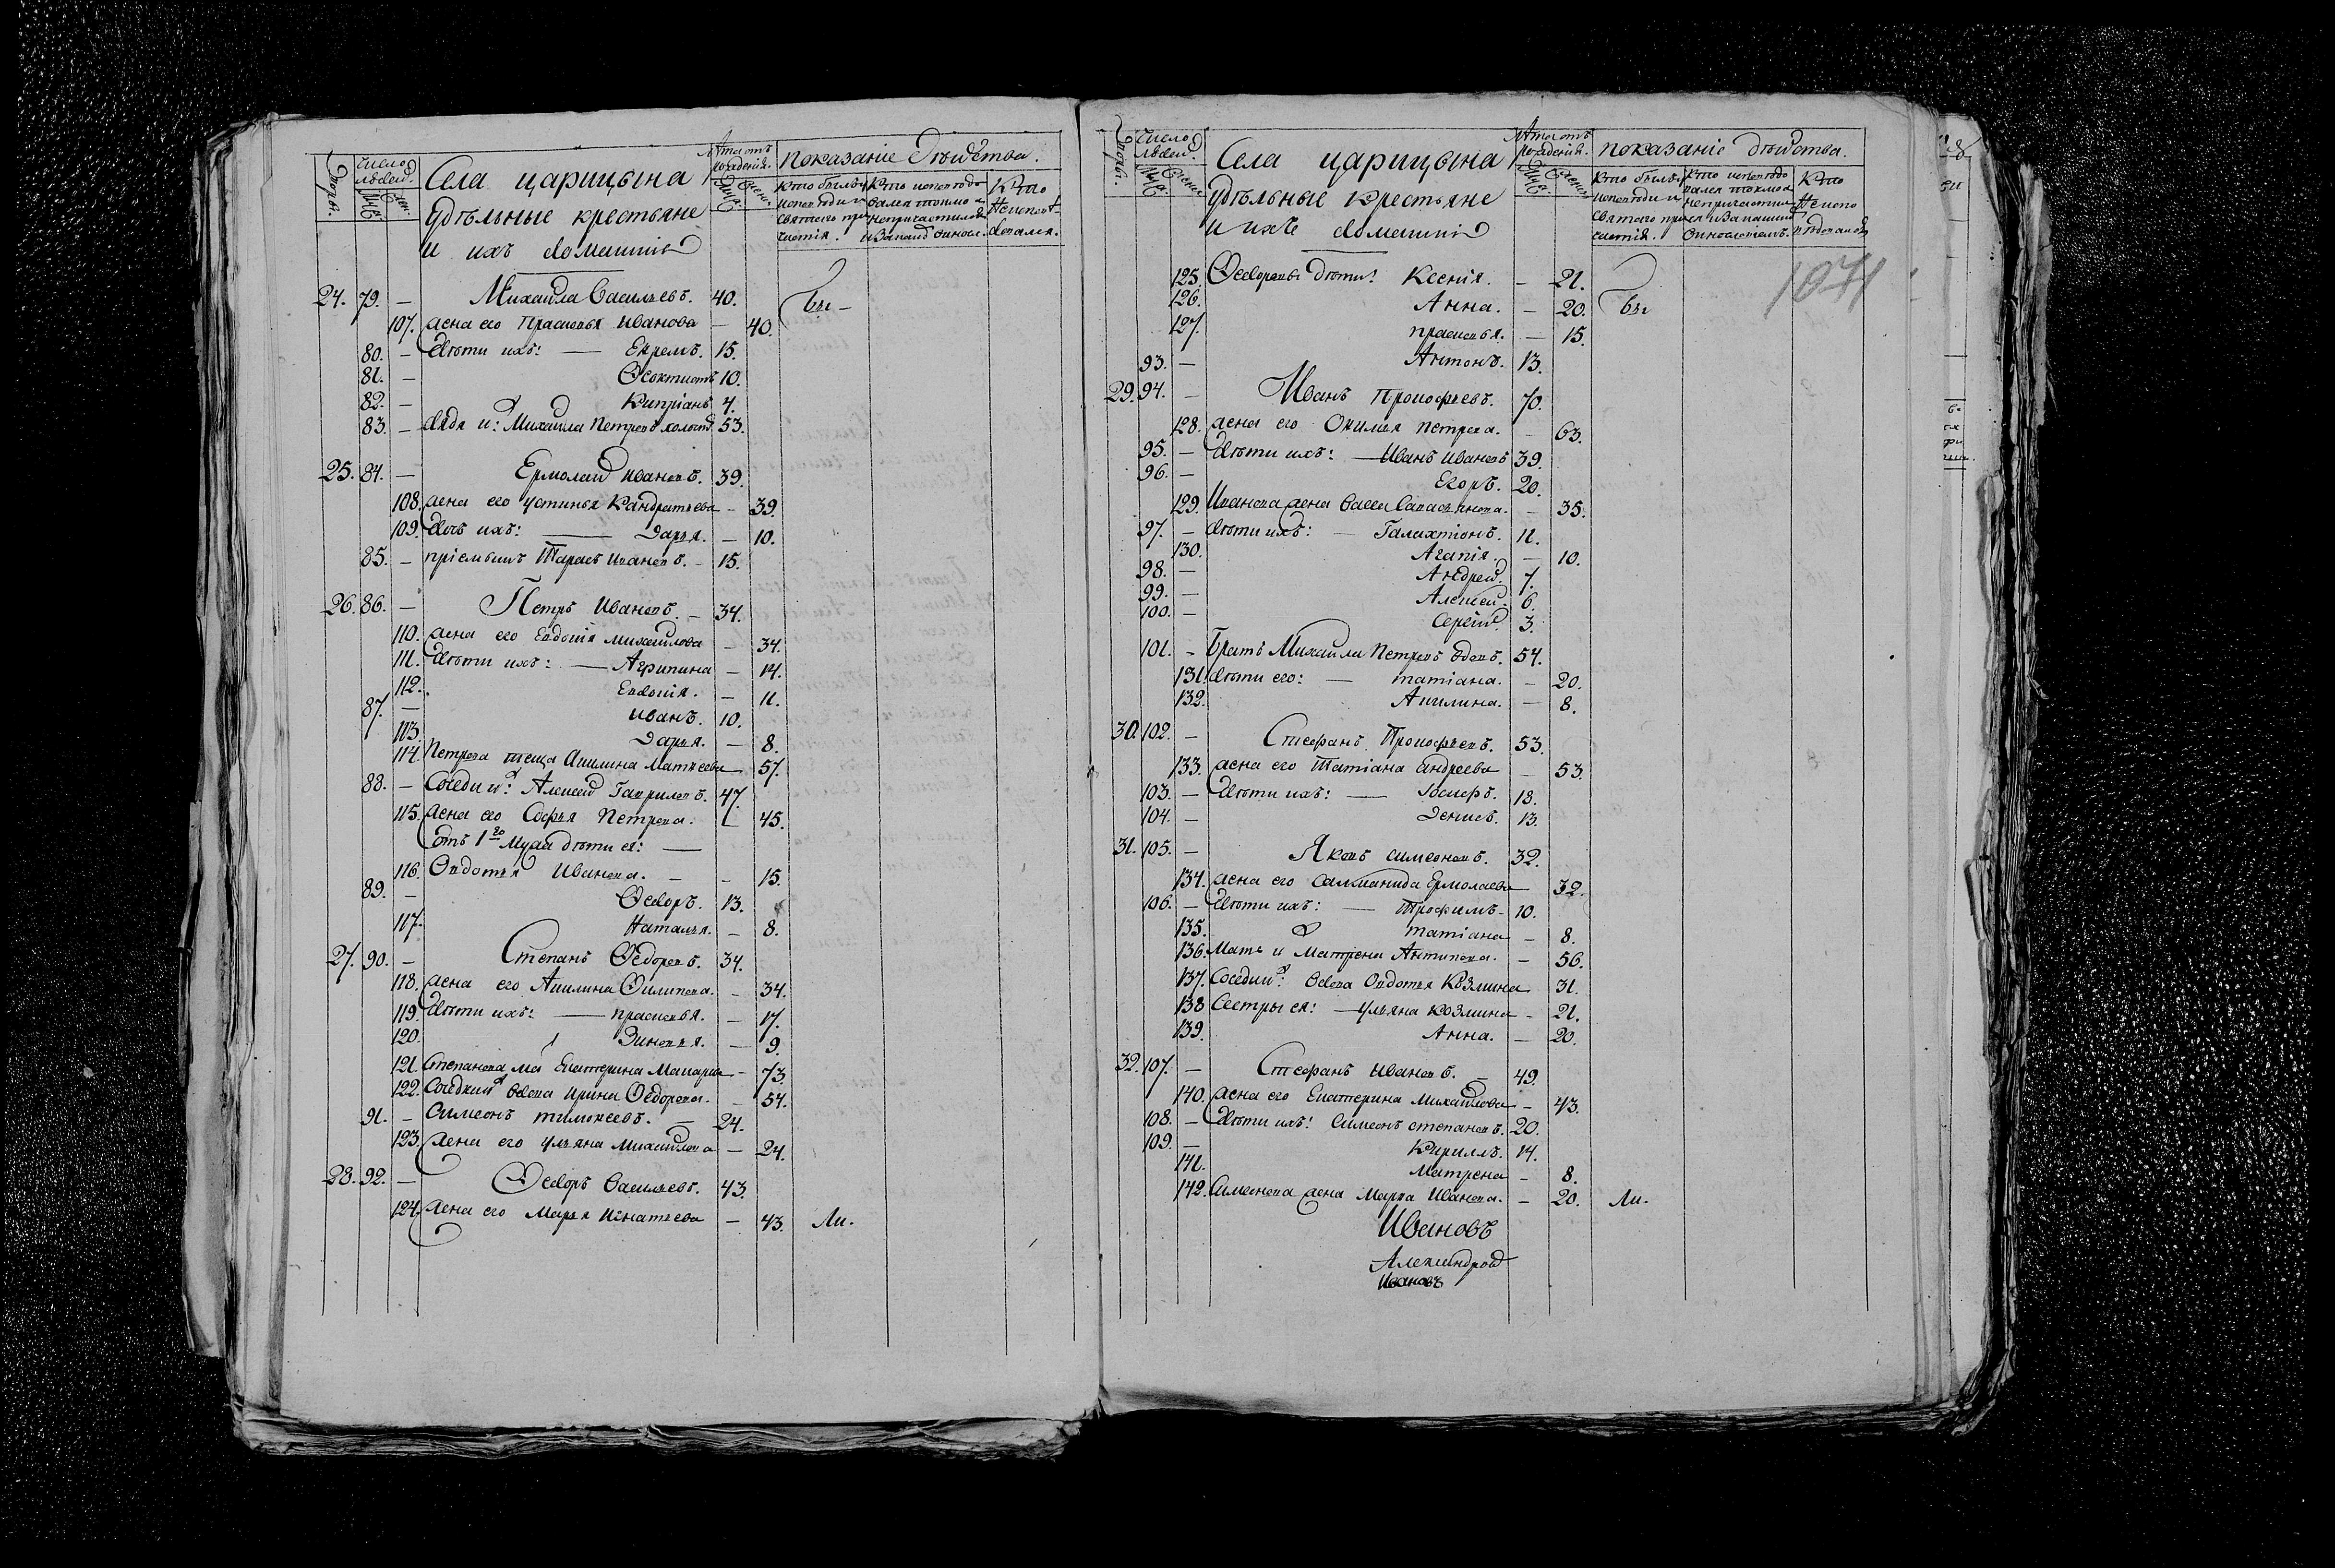 Число людей.
Села царицына
удѣльные крестьяне
и ихъ домашнiй
Лѣта отъ рожденiя.
показанiе дѣйства.
Кто былъ у
исповѣди и
святаго при
частiя.
Кто исповѣдо
вался токмо а
непричастился
и за какимъ виносл.
Кто
неиспов
довался.
24. 79. — Михаила Васильевъ. 40. бы —
107. жена его Прасковья Иванова — 40.
80. — дѣти ихъ: — Ефремъ. 15.
81. — Ѳеоктистъ 10.
82. — Кипрiанъ 4.
83. — дядя и: Михаила Петровъ холост. 53.
25. 84. — Ермолай Ивановъ. 39.
108. жена его Устинья Кандратьева — 39.
109. дочь ихъ: — Дарья. — 10.
85. — прiемышъ Тарасъ Ивановъ. — 15.
26. 86. — Петръ Ивановъ. — 34.
110. жена его Евдокiя Михайлова — 34.
111. дѣти ихъ: — Агрипина — 14.
112. Евдокiя. — 11.
87. — Иванъ. 10.
113. Дарья. — 8.
114. Петрова теща Акилина Матвеева 57.
88. — Соседи и: Алексей Гавриловъ. 47.
115. жена его Софья Петрова. 45.
отъ 1го мужа дѣти ея: —
116. Овдотья Иванова. — — 15.
89. — Ѳедоръ. 13.
117. Наталья. — 8.
27. 90. — Степанъ Ѳедоровъ. 34.
118. жена его Акилина Филипова. — 34.
119. дѣти ихъ: — прасковья. — 17.
120. Зиновья. — 9.
121. Степанова ма Екатерина Макарова — 73.
122. Соседки вдова Ирина Ѳедорова. — 54.
91. — Симеонъ тимоѳеевъ. — 24.
123. жена его ульяна Михайлова — 24.
28. 92. — Ѳедоръ Васильевъ. 43.
124. жена его Марья Игнатьева — 43. ли.
Число людей.
Села царицына
удѣльные крестьяне
и ихъ домашнiй
Лѣта отъ рожденiя.
показанiе дѣйства.
Кто былъ у
исповѣди и
святаго при
частiя.
Кто исповѣдо
вался токмо а
непричастил
ся и за какимъ
виносл.
Кто
неиспо
вѣдовался
1071
125. Ѳедоровы дѣти: Ксенiя. — 21.
126. Анна. — 20. бы
127. прасковья. — 15.
93. — Антонъ. 13.
29. 94. — Иванъ Прокофьевъ. 70.
128. жена его Акилья петрова. — 63.
95. — дѣти ихъ: — Иванъ Ивановъ 39.
96. — Егоръ. 20.
129. Иванова жена Васса Савасьянова. — 35.
97. — дѣти ихъ: — Галахтiонъ. 11.
130. Агапiя. — 10.
98. — Андрей. 7.
99. — Алексей. 6.
100. — Сергiй. 3.
101. — Братъ Михаила Петровъ вдовъ. 54.
131. дѣти его: — татiана. — 20.
132. Акилина. — 8.
30. 102. — Стефанъ Прокофьевъ. 53.
133. жена его Татiана Андреева — 53.
103. — дѣти ихъ: — Iосифъ. 18.
104. — Денисъ. 13.
31. 105. — Яковъ Симеоновъ. 32.
134. жена его Салманида Ермолаева 32.
106. — дѣти ихъ: — Трофимъ — 10.
135. татiана — 8.
136. Мать и Матрена Антипова. — 56.
137. Соседки: вдова Овдотья Козмина 31.
138 Сестры ея: — Ульяна Козмина — 21.
139. Анна. — 20.
32. 107. — Стефанъ Ивановъ. — 49.
140. жена его Екатерина Михайлова — 43.
108. — дѣти ихъ: Симеонъ степановъ. 20.
109. — Кирилъ. 14.
141. Матрена — 8.
142. Симеонова жена Марѳа Иванова. — 20. ли.
Ивановъ
Александрой
Ивановъ